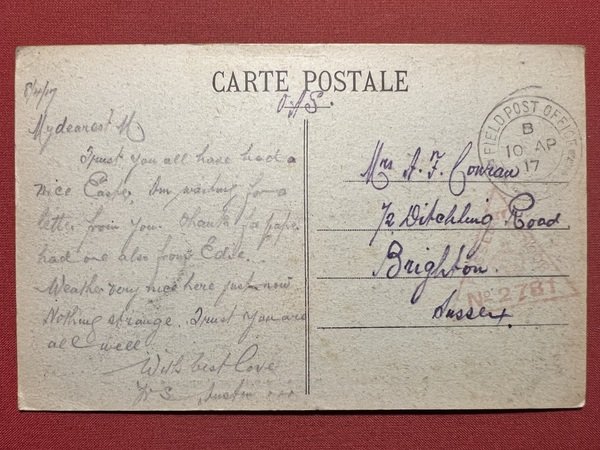 CARTE POSTALE
8/4/17
O.A.S.
My dearest M
Trust you all have had a
nice Easter, Im waiting for a
letter from you. thanks for paper
had one also from Edie.
Weather very nice here just now
Nothing strange. Trust you are
all well
With best love
xxx
Mrs. A. F. Conran
72 Ditchling Road
Brighton.
Sussex.
FIELD POST OFFICE
B
10 AP
17
No 2781